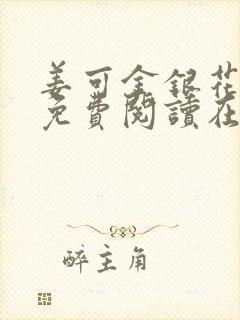 姜可金銀花
免費閱讀在
醉主角